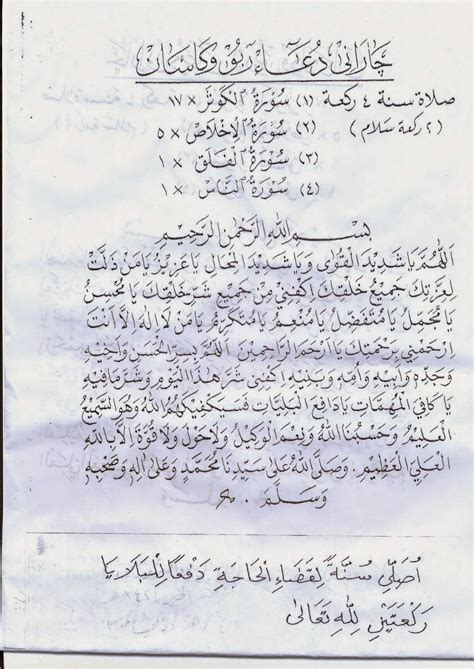 چاراني دُعَآء ربو وكاسان
صلاة سنة ٤ ركعة (١) سُوْرَةُ الْكَوْثَرْ × ١٧
(٢ ركعة سلام) (٢) سُوْرَةُ الْإِخْلَاصْ × ٥
(٣) سُوْرَةُ الْفَلَقْ × ١
(٤) سُوْرَةُ النَّاسْ × ١
بِسْمِ اللهِ الرَّحْمٰنِ الرَّحِيْمِ
اَللّٰهُمَّ يَا شَدِيْدَ الْقُوٰى وَيَا شَدِيْدَ الْمِحَالِ يَا عَزِيْزُ يَا مَنْ ذَلَّتْ
لِعِزَّتِكَ جَمِيْعُ خَلْقِكَ اِكْفِنِيْ مِنْ جَمِيْعِ شَرِّ خَلْقِكَ يَا مُحْسِنُ
يَا مُجَمِّلُ يَا مُتَفَضِّلُ يَا مُنْعِمُ يَا مُتَكَرِّمُ يَا مَنْ لَا اِلٰهَ اِلَّا اَنْتَ
اِرْحَمْنِيْ بِرَحْمَتِكَ يَا اَرْحَمَ الرَّاحِمِيْنَ اَللّٰهُمَّ بِسِرِّ الْحَسَنِ وَاَخِيْهِ
وَجَدِّهِ وَاَبِيْهِ وَاُمِّهِ وَبَنِيْهِ اِكْفِنِيْ شَرَّ هٰذَا الْيَوْمِ وَشَرَّ مَا فِيْهِ
يَا كَافِيَ الْمُهِمَّاتِ يَا دَافِعَ الْبَلِيَّاتِ فَسَيَكْفِيْكَهُمُ اللهُ وَهُوَ السَّمِيْعُ
الْعَلِيْمُ وَحَسْبُنَا اللهُ وَنِعْمَ الْوَكِيْلُ وَلَا حَوْلَ وَلَا قُوَّةَ اِلَّا بِاللهِ
الْعَلِيِّ الْعَظِيْمِ. وَصَلَّى اللهُ عَلٰى سَيِّدِنَا مُحَمَّدٍ وَعَلٰى اٰلِهِ وَصَحْبِهِ
وَسَلَّمَ.
اُصَلِّيْ سُنَّةً لِقَضَاءِ الْحَاجَةِ دَفْعًا لِلْبَلَايَا
رَكْعَتَيْنِ لِلّٰهِ تَعَالٰى